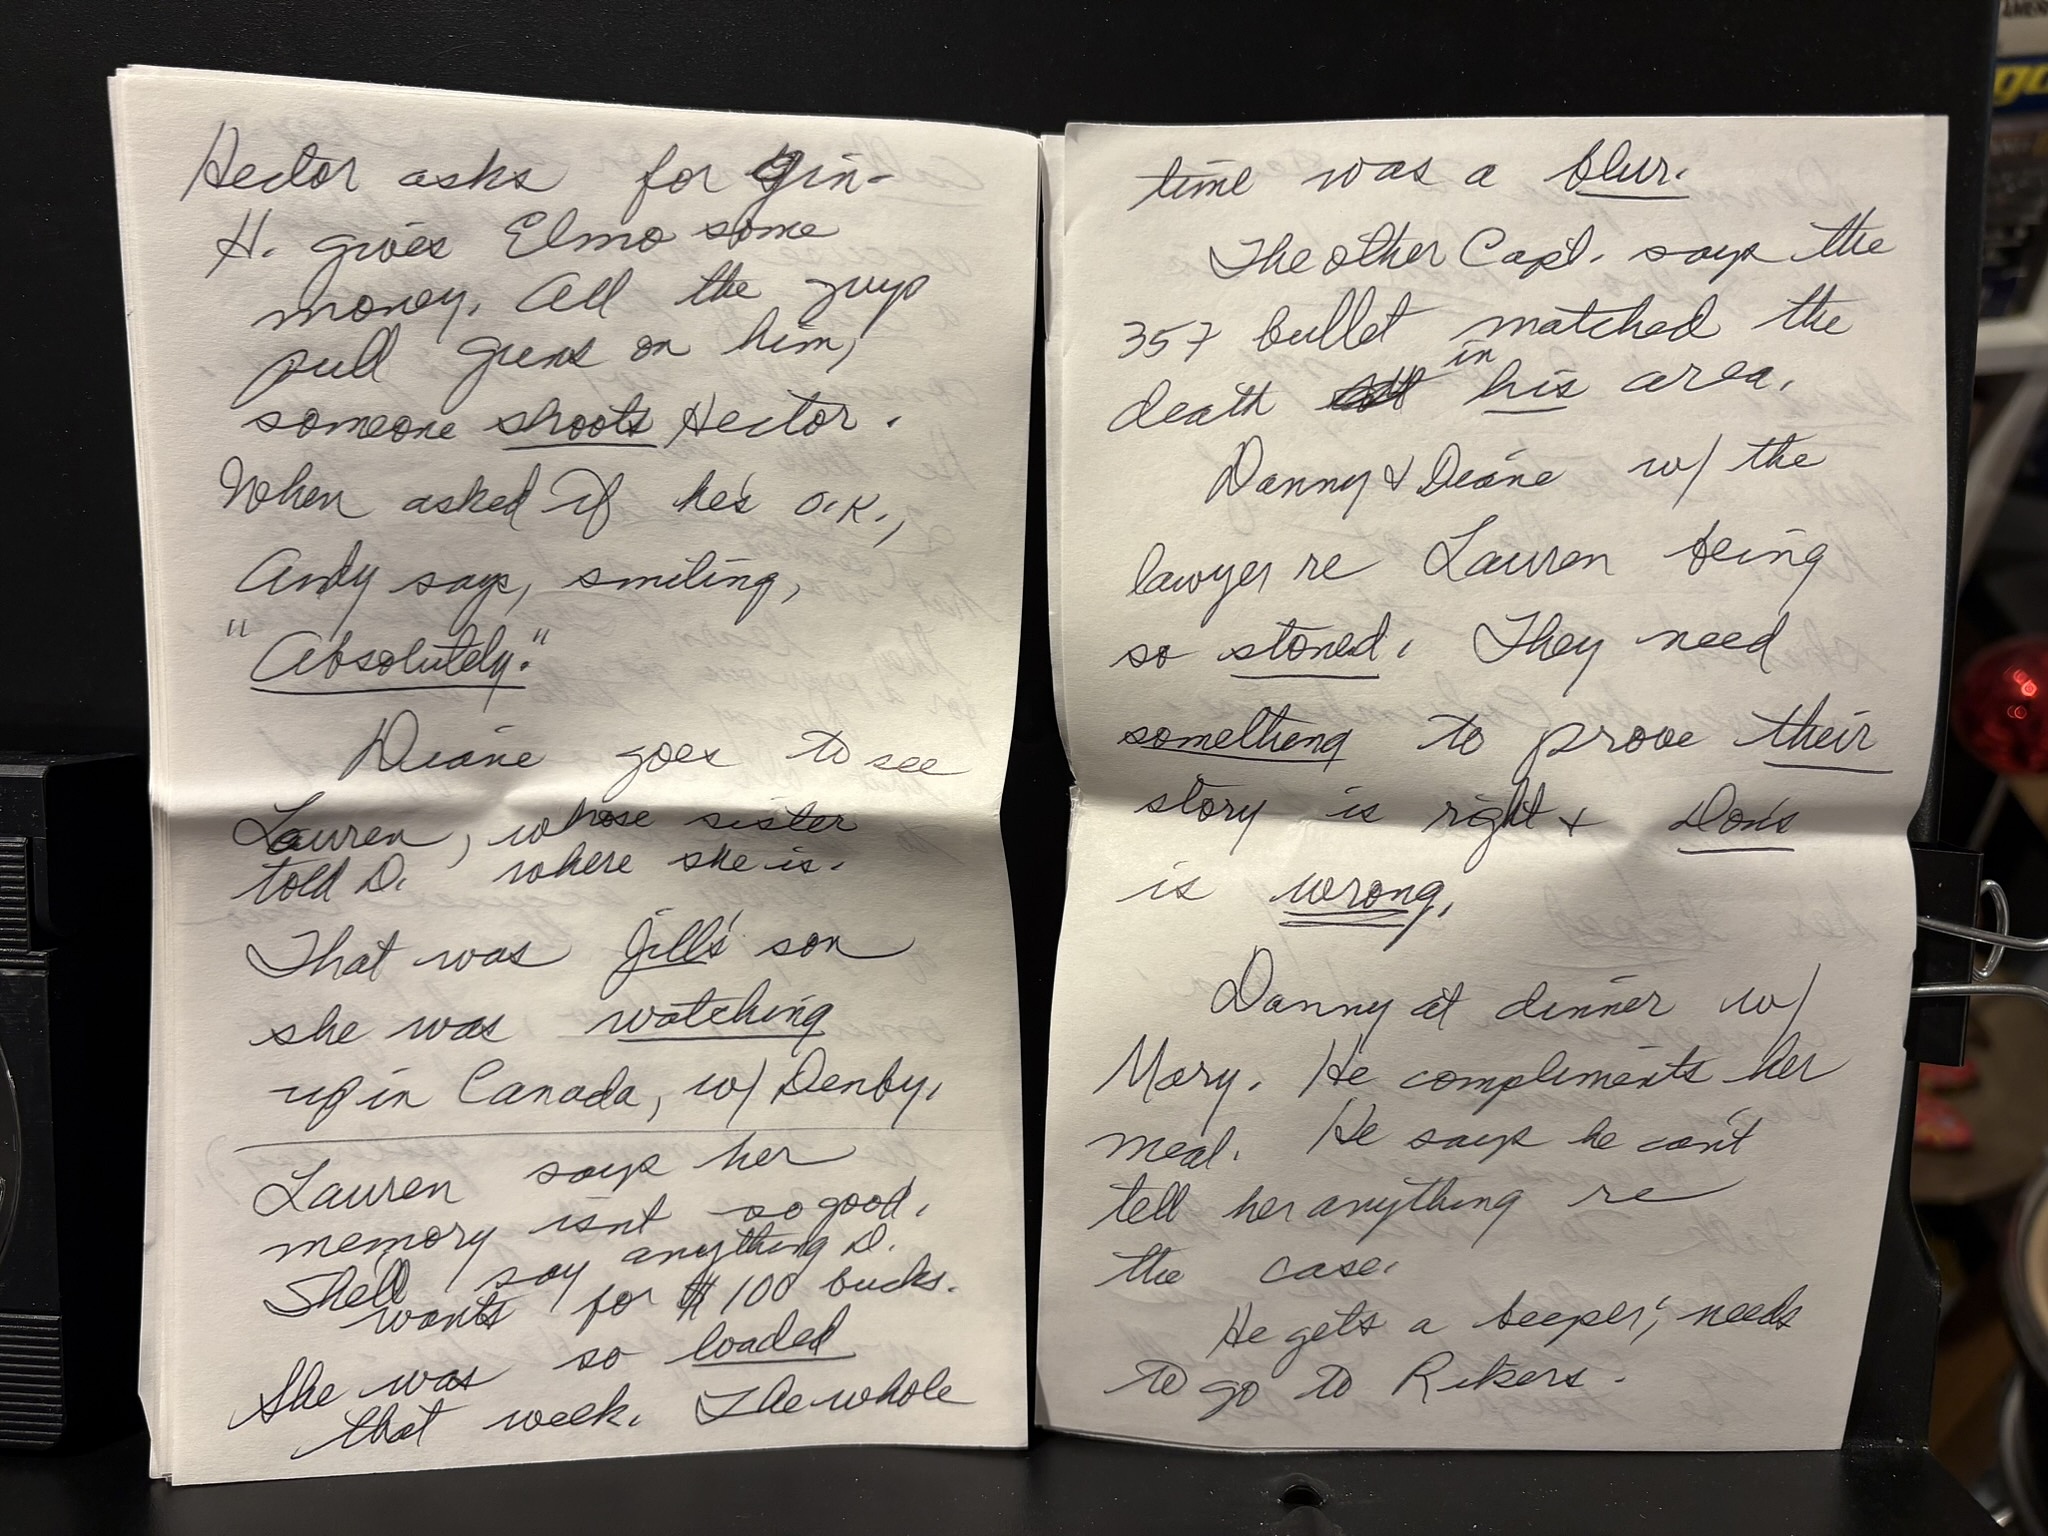 Hector asks for gin-
H. gives Elmo some
money. All the guys
pull guns on him,
someone shoots Hector.
When asked if he's O.K.,
Andy says, smiling,
"Absolutely."
Diane goes to see
Lauren, whose sister
told D. where she is.
That was Jill's son
she was watching
up in Canada, w/ Denby.
Lauren says her
memory isn't so good.
She'll say anything D.
wants for $100 bucks.
She was so loaded
that week. The whole
time was a blur.
The other Capt. says the
357 bullet matched the
death in his area.
Danny & Diane w/ the
lawyer re Lauren being
so stoned. They need
something to prove their
story is right & Don's
is wrong.
Danny at dinner w/
Mary. He compliments her
meal. He says he can't
tell her anything re
the case.
He gets a beeper; needs
to go to Rikers.